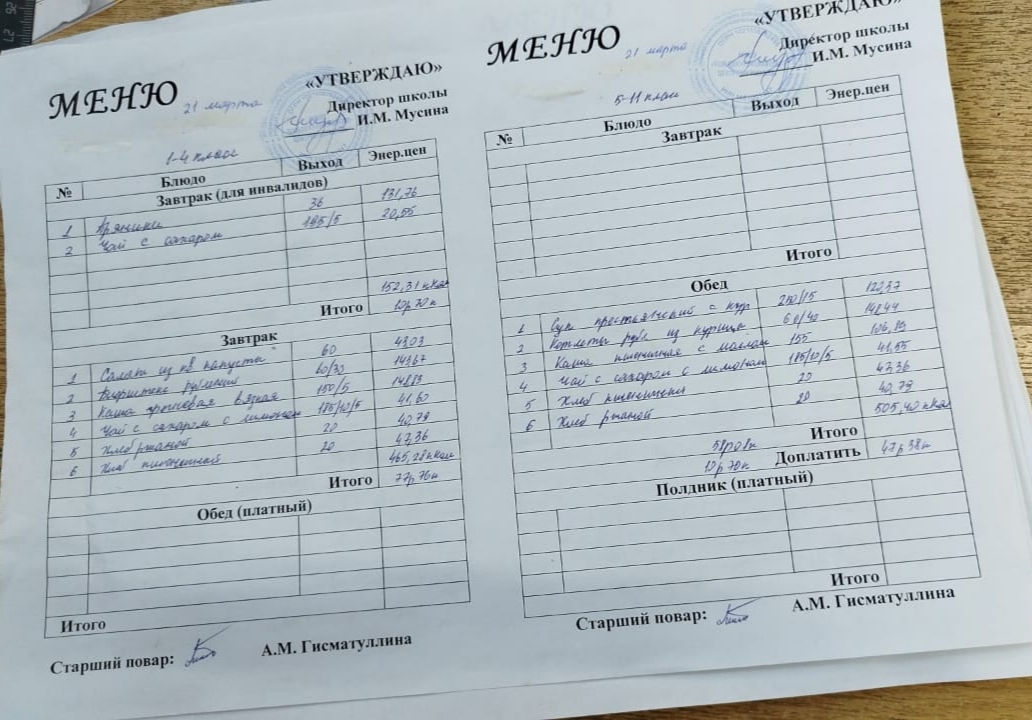 МЕНЮ
21 марта
«УТВЕРЖДАЮ»
Директор школы
И.М. Мусина
1-4 класс
№ Блюдо Выход Энер.цен
Завтрак (для инвалидов)
1 Пряники 36 131,76
2 Чай с сахаром 185/5 20,55
152,31 ккал
Итого 10р 70к
Завтрак
1 Салат из кв капусты 60 43,03
2 60/30 143,67
3 Каша гречневая вязкая 150/5 148,83
4 Чай с сахаром с лимоном 185/10/5 41,60
5 Хлеб ржаной 20 40,79
6 Хлеб пшеничный 20 47,36
465,28 ккал
Итого 77р 76к
Обед (платный)
Итого
Старший повар: А.М. Гисматуллина
МЕНЮ
21 марта
«УТВЕРЖДАЮ»
Директор школы
И.М. Мусина
5-11 класс
№ Блюдо Выход Энер.цен
Завтрак
Итого
Обед
1 Суп крестьянский с кур 250/15 122,37
2 Котлеты рубл из курица 60/40
3 Каша пшеничная с маслом 155 106,19
4 Чай с сахаром с лимоном 185/10/5 41,55
5 Хлеб пшеничный 20 47,36
6 Хлеб ржаной 20 40,79
505,40 ккал
Итого 58р08к
10р 70к Доплатить 47р 38к
Полдник (платный)
Итого
Старший повар: А.М. Гисматуллина